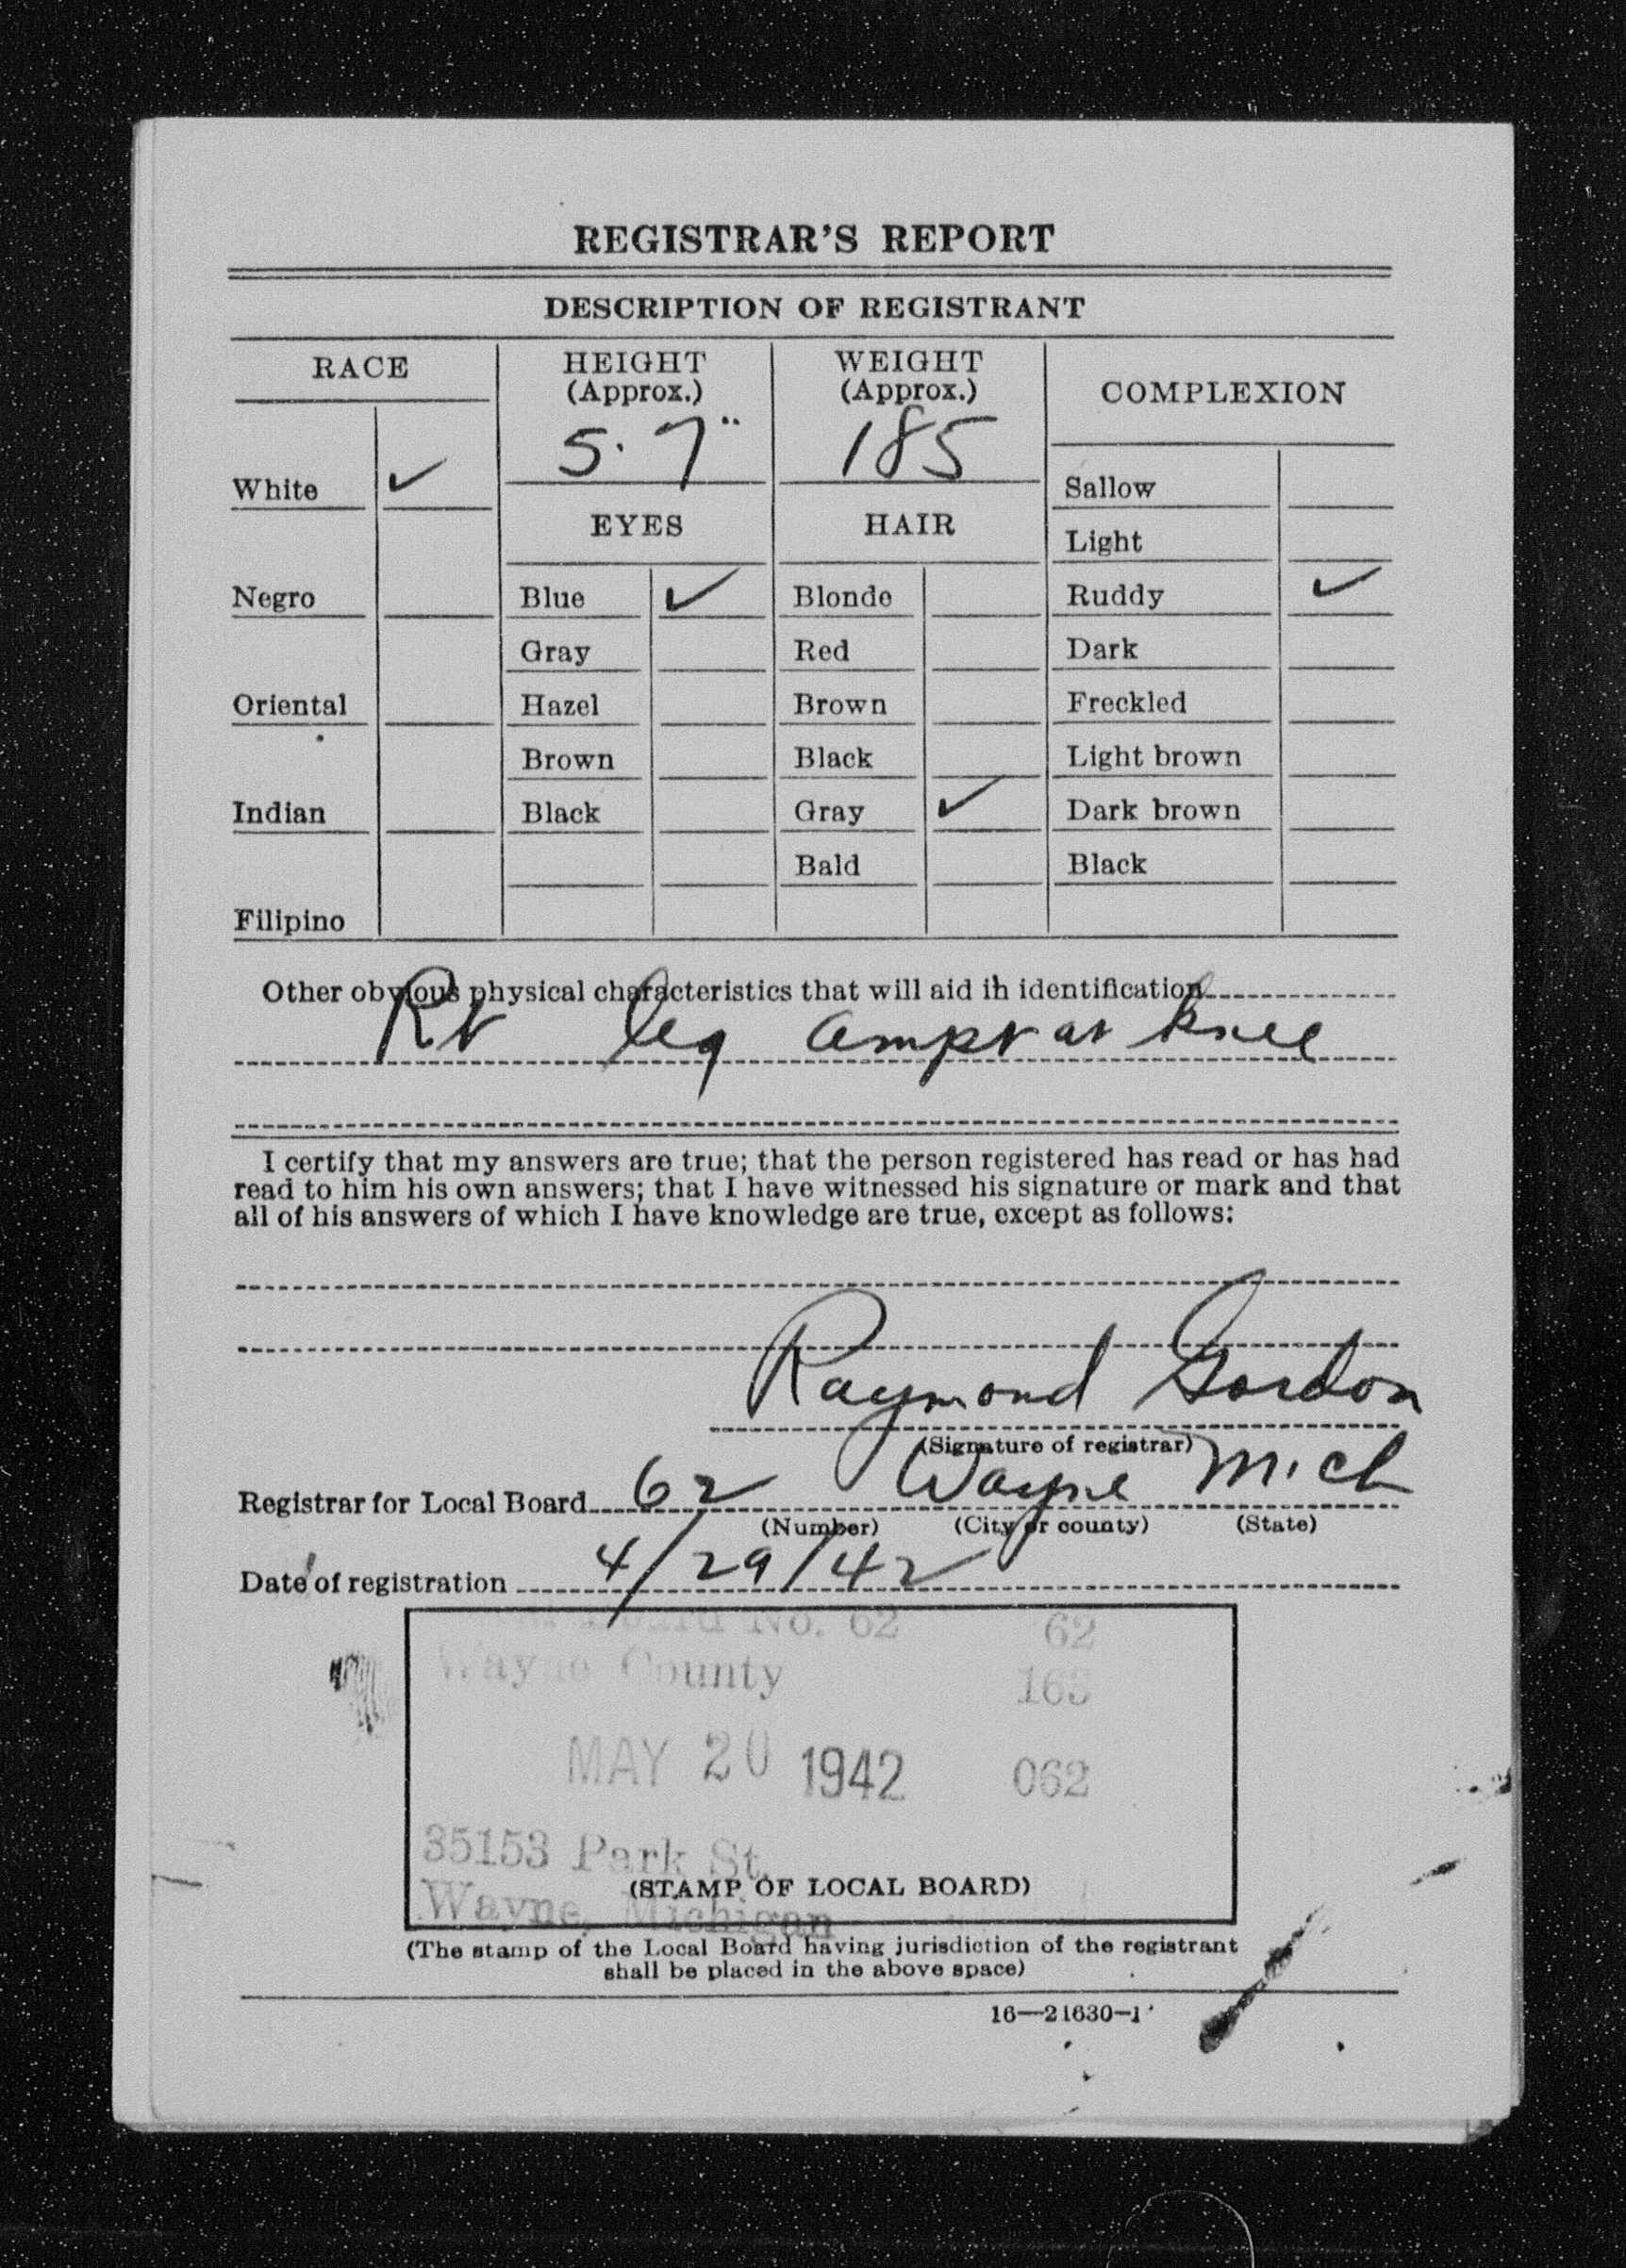 REGISTRAR'S REPORT
DESCRIPTION OF REGISTRANT
RACE
HEIGHT
(Approx.)
WEIGHT
(Approx.)
COMPLEXION
5. 7"
185
White ✓
Sallow
EYES
HAIR
Light
Negro
Blue ✓
Blonde
Ruddy ✓
Gray
Red
Dark
Oriental
Hazel
Brown
Freckled
Brown
Black
Light brown
Indian
Black
Gray ✓
Dark brown
Bald
Black
Filipino
Other obvious physical characteristics that will aid in identification
Rt leg ampt at knee
I certify that my answers are true; that the person registered has read or has had
read to him his own answers; that I have witnessed his signature or mark and that
all of his answers of which I have knowledge are true, except as follows:
Raymond Gordon
(Signature of registrar)
Registrar for Local Board 62 Wayne Mich
(Number) (City or county) (State)
Date of registration 4/29/42
Board No. 62 62
Wayne County 163
MAY 20 1942 062
35153 Park St.
(STAMP OF LOCAL BOARD)
Wayne, Michigan
(The stamp of the Local Board having jurisdiction of the registrant
shall be placed in the above space)
16—21630-1